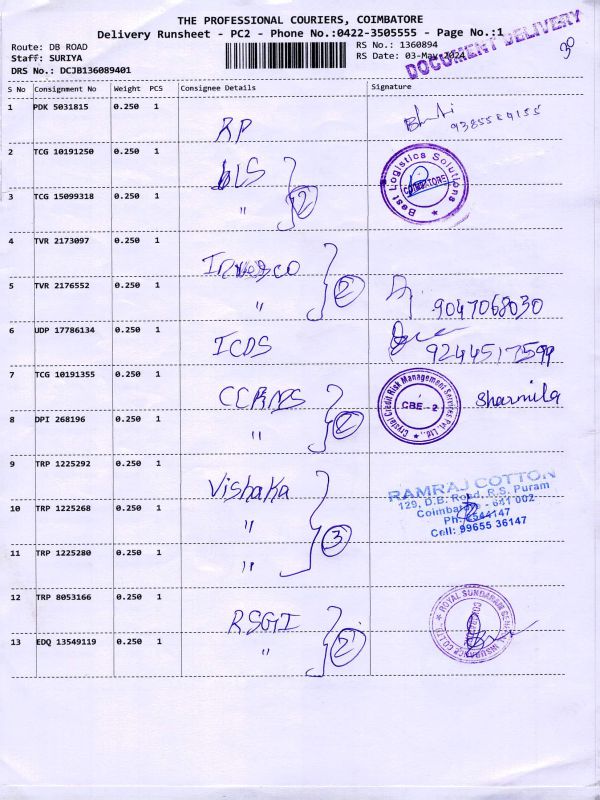 THE PROFESSIONAL COURIERS, COIMBATORE
Delivery Runsheet - PC2 - Phone No.:0422-3505555 - Page No.:1
Route: DB ROAD
Staff: SURIYA
DRS No.: DCJB136089401
RS No.: 1360894
RS Date: 03-May-2024
DOCUMENT DELIVERY
S No Consignment No Weight PCS Consignee Details Signature
1 PDK 5031815 0.250 1 RP 9385554155
2 TCG 10191250 0.250 1 BLS
3 TCG 15099318 0.250 1 " 2
Best Logistics Solutions
COIMBATORE
4 TVR 2173097 0.250 1 Invesco
5 TVR 2176552 0.250 1 " 2 9047068030
6 UDP 17786134 0.250 1 ICDS 9244517599
7 TCG 10191355 0.250 1 CCRMS
8 DPI 268196 0.250 1 " 2
Crystal Credit Risk Management Services Pvt. Ltd.
CBE-2
Sharmila
9 TRP 1225292 0.250 1 Vishaka
10 TRP 1225268 0.250 1 "
11 TRP 1225280 0.250 1 " 3
RAMRAJ COTTON
129, D.B. Road, R.S. Puram
Coimbatore - 641 002
Ph: 2544147
Cell: 99655 36147
12 TRP 8053166 0.250 1 RSGI
13 EDQ 13549119 0.250 1 " 2
ROYAL SUNDARAM GENERAL INSURANCE CO LTD.